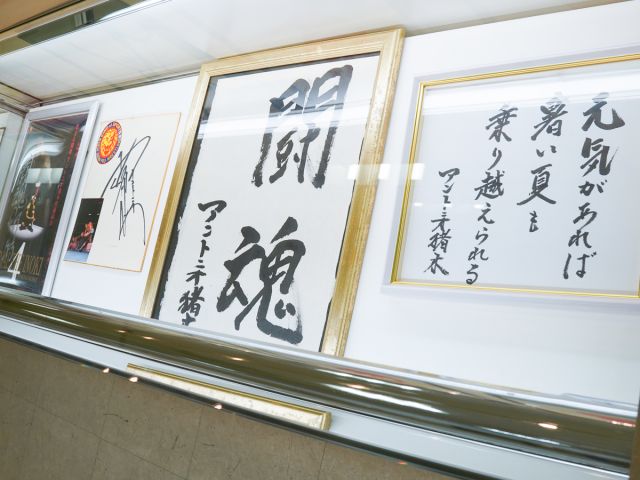 元気があれば
暑い夏も
乗り越えられる
アントニオ猪木
闘魂
アントニオ猪木
INOKI